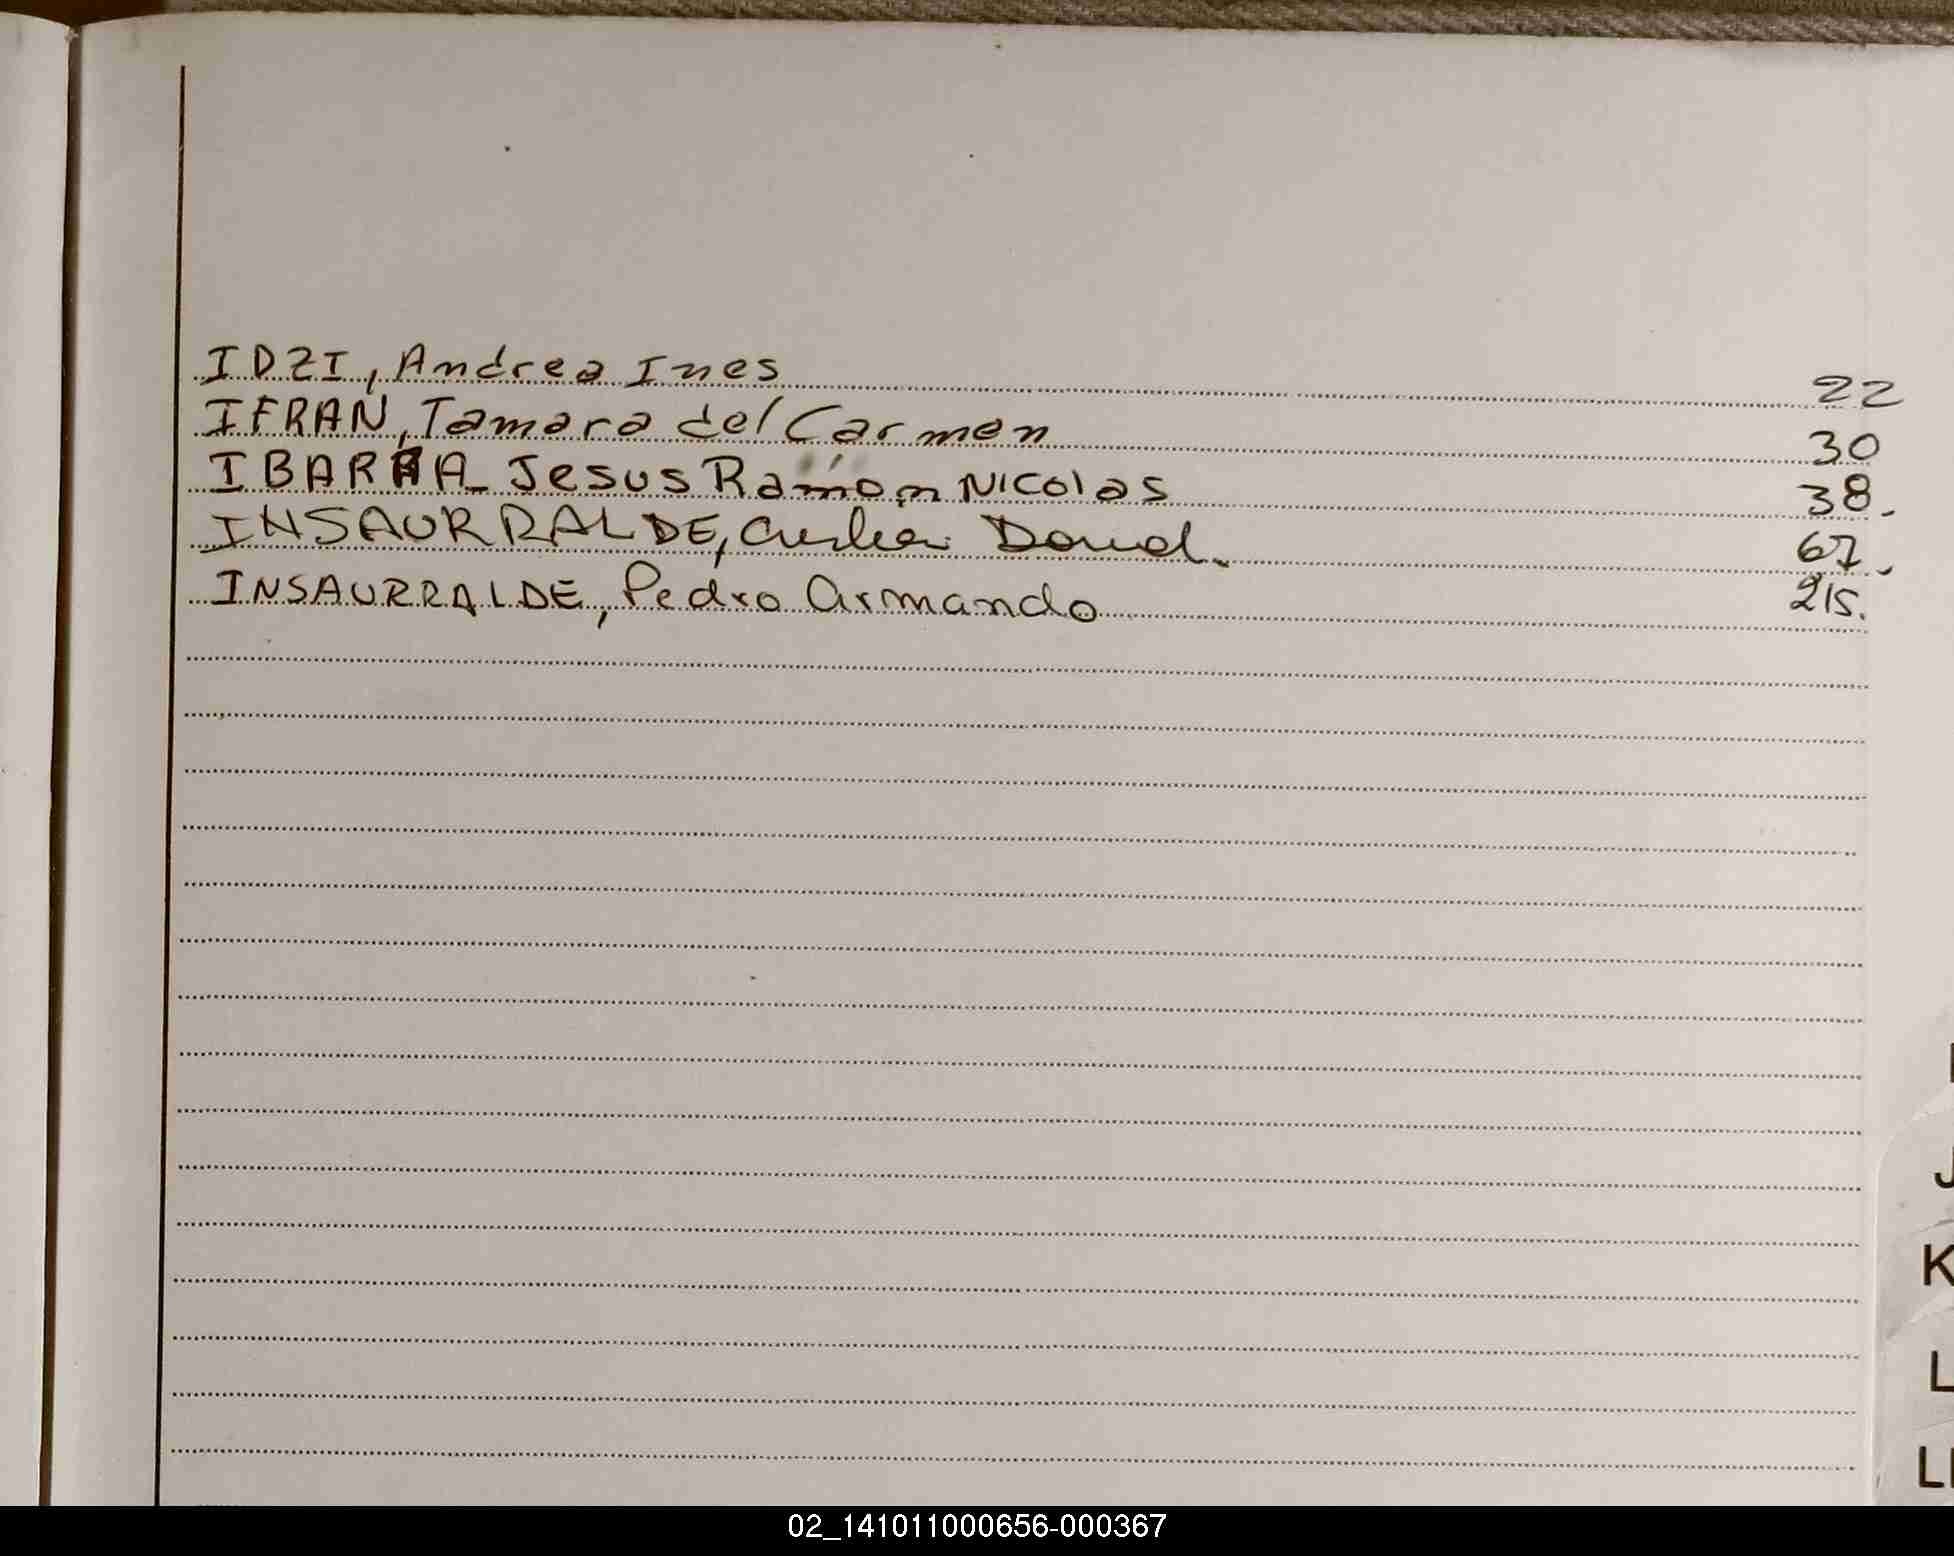 IDZI, Andrea Ines 22
IFRAN, Tamara del Carmen 30
IBARRA_ Jesus Ramon Nicolas 38.
INSAURRALDE, David. 67.
INSAURRALDE, Pedro Armando 215.
J
K
L
02_141011000656-000367